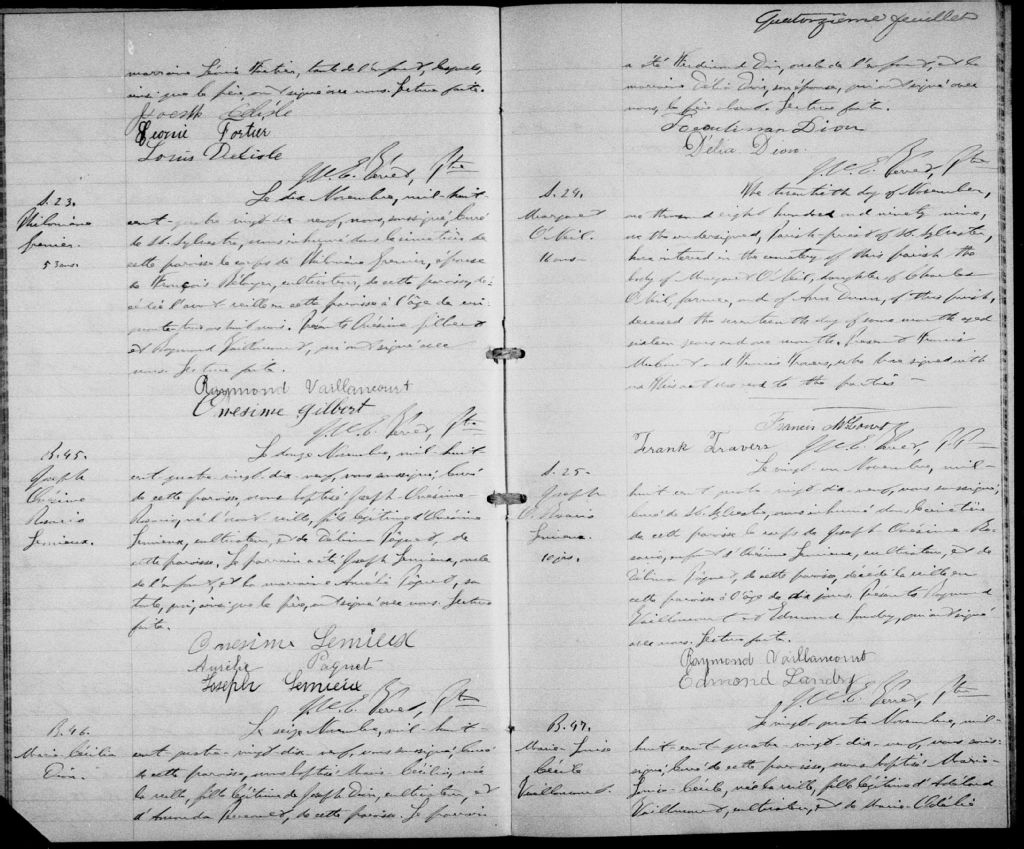 marraine Léonie Fortier, tante de l'enfant, lesquels,
ainsi que le père, ont signé avec nous. Lecture faite.
Joseph Delisle
Leonie Fortier
Louis Delisle
Ptre
S. 23.
Philomène
Grenier.
53 ans.
Le dix Novembre, mil-huit
cent-quatre-vingt-dix-neuf, nous, soussigné, Curé
de St. Sylvestre, avons inhumé dans le cimetière de
cette paroisse le corps de Philomène Grenier, épouse
de François Bélanger, cultivateur, de cette paroisse, dé-
cédée l'avant veille en cette paroisse à l'âge de cin-
quante trois ans huit mois. Présents Onésime Gilbert
et Raymond Vaillancourt, qui ont signé avec
nous. Lecture faite.
Raymond Vaillancourt
Onesime Gilbert
Ptre
B. 45.
Joseph
Onésime
Rosario
Lemieux.
Le douze Novembre, mil-huit
cent quatre-vingt-dix-neuf, nous soussigné, Curé
de cette paroisse, avons baptisé Joseph-Onésime-
Rosario, né l'avant veille, fils légitime d'Onésime
Lemieux, cultivateur, et de Délima Paquet, de
cette paroisse. Le parrain a été Joseph Lemieux, oncle
de l'enfant, et la marraine Aurélie Paquet, sa
tante, qui, ainsi que le père, ont signé avec nous. Lecture
faite.
Onesime Lemieux
Aurélie Paquet
Joseph Lemieux
Ptre
B. 46.
Marie Cécilia
Dion.
Le seize Novembre, mil-huit-
cent quatre-vingt-dix-neuf, nous soussigné, curé
de cette paroisse, avons baptisé Marie-Cécilia, née
la veille, fille légitime de Joseph Dion, cultivateur, et
d'Amanda, de cette paroisse. Le parrain
Quatorzième feuillet
a été Dion, oncle de l'enfant, et la
marraine Délia Dion, son épouse, qui ont signé avec
nous, le père absent. Lecture faite.
Dion
Délia Dion.
Ptre
S. 24.
Margaret
O'Neil.
16 ans
The twentieth day of November,
one thousand eight hundred and ninety nine,
we the undersigned, Parish-priest of St. Sylvester,
have interred in the cemetery of this parish the
body of Margaret O'Neil, daughter of Charles
O'Neil, farmer, and of Ann Dunn, of this parish,
deceased the seventeenth day of same month aged
sixteen years and one month. Present Francis
and Francis Travers, who have signed with
us. This act was read to the parties
Francis McGourty
Frank Travers
Ptre
S. 25.
Joseph
O. Rosario
Lemieux.
10 jrs.
Le vingt-un Novembre, mil-
huit cent quatre-vingt-dix-neuf, nous soussigné,
Curé de St. Sylvestre, avons inhumé dans le cimetière
de cette paroisse le corps de Joseph Onésime Ro-
sario, enfant d'Onésime Lemieux, cultivateur, et de
Délima Paquet, de cette paroisse, décédé la veille en
cette paroisse à l'âge de dix jours. Présents Raymond
Vaillancourt et Edmond Landry, qui ont signé
avec nous. Lecture faite.
Raymond Vaillancourt
Edmond Landry
Ptre
B. 47.
Marie-Louise
Cécile
Vaillancourt.
Le vingt-quatre Novembre, mil-
huit-cent quatre-vingt-dix-neuf, nous sous-
signé, curé de cette paroisse, avons baptisé Marie-
Louise-Cécile, née la veille, fille légitime d'Adélard
Vaillancourt, cultivateur, et de Marie